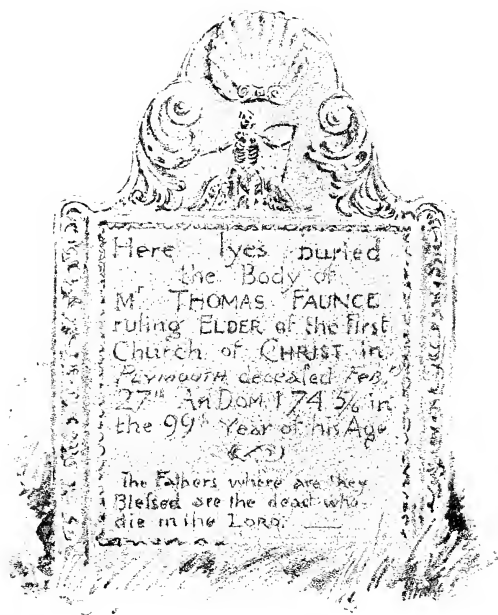 Here lyes buried
the Body of
Mʳ THOMAS FAUNCE
ruling ELDER of the first
Church of CHRIST in
PLYMOUTH deceased Febʳʸ
27ᵗʰ An DOM 174 5/6 in
the 99ᵗʰ Year of his Age
The Fathers where are they
Blesſed are the dead who
die in the LORD.